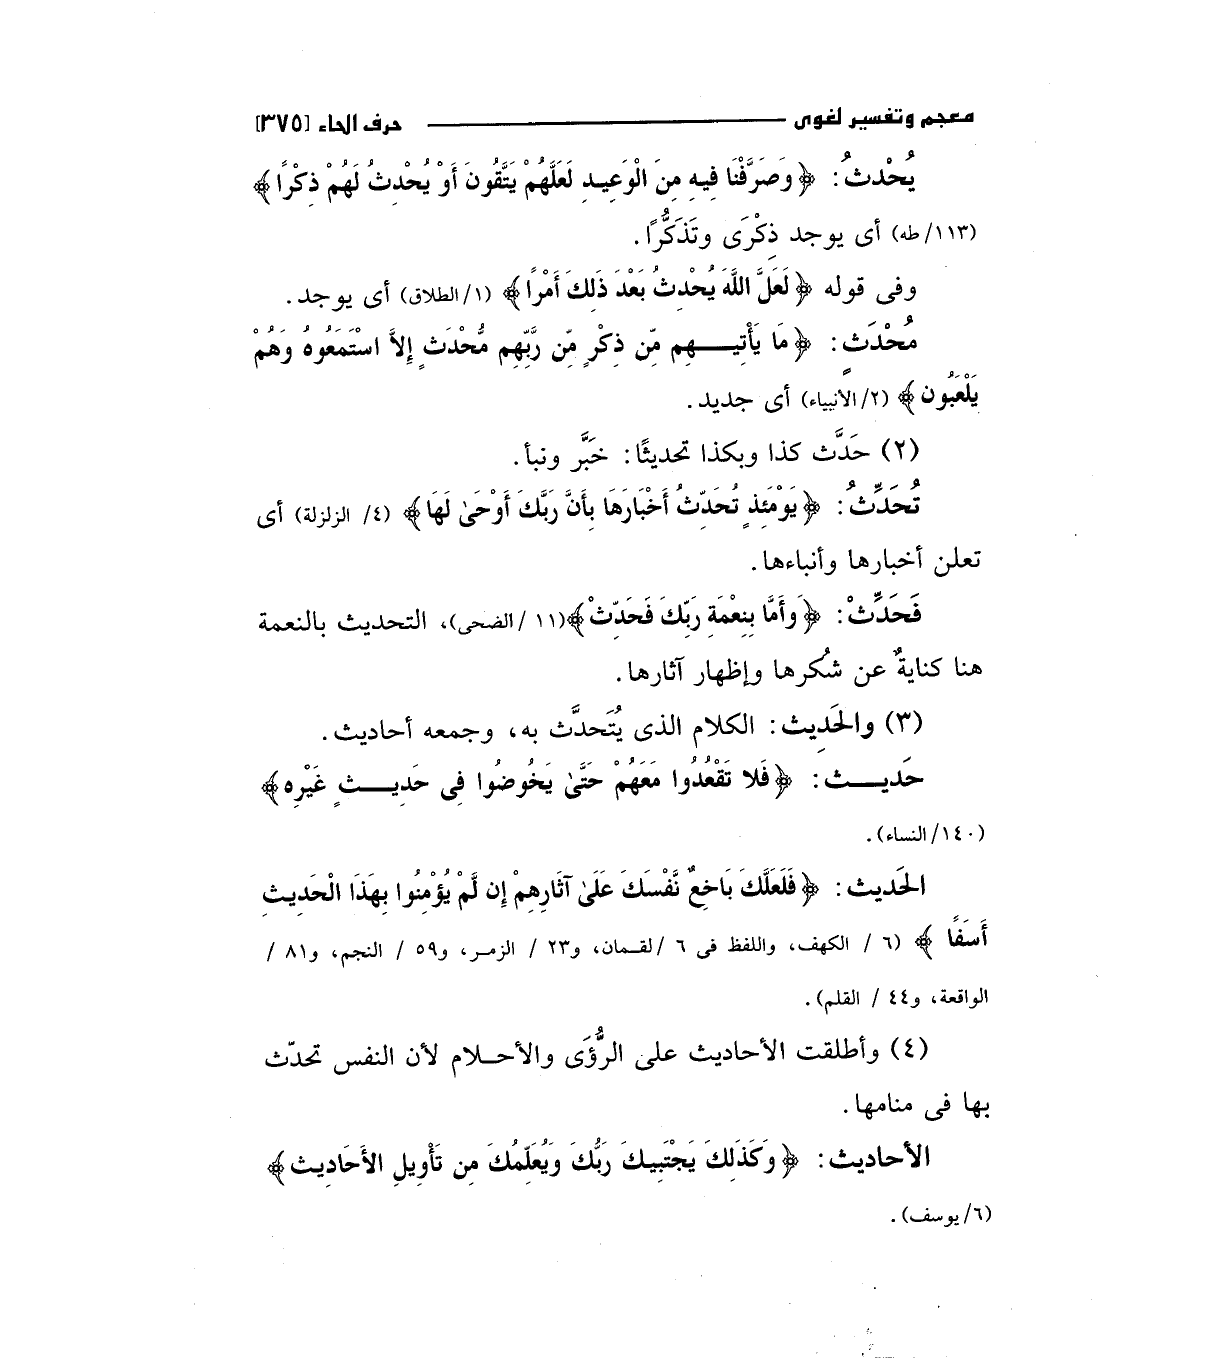 معجم وتفسير لغوى ــــــــ حرف الحاء [٣٧٥]
يُحْدثُ: ﴿وَصَرَّفْنَا فِيهِ مِنَ الْوَعِيدِ لَعَلَّهُمْ يَتَّقُونَ أَوْ يُحْدِثُ لَهُمْ ذِكْرًا﴾
(١١٣/ طه) أى يوجد ذِكْرَى وتَذَكُّرًا.
وفى قوله ﴿لَعَلَّ اللَّهَ يُحْدِثُ بَعْدَ ذَلِكَ أَمْرًا﴾ (١/ الطلاق) أى يوجد.
مُحْدَثٍ: ﴿مَا يَأْتِيـــهِم مِّن ذِكْرٍ مِّن رَّبِّهِم مُّحْدَثٍ إِلاَّ اسْتَمَعُوهُ وَهُمْ
يَلْعَبُون﴾ (٢/ الأنبياء) أى جديد.
(٢) حَدَّث كذا وبكذا تحديثًا: خَبَّر ونبأ.
تُحَدِّثُ: ﴿يَوْمَئِذٍ تُحَدِّثُ أَخْبَارَهَا بِأَنَّ رَبَّكَ أَوْحَىٰ لَهَا﴾ (٤/ الزلزلة) أى
تعلن أخبارها وأنباءها.
فَحَدِّثْ: ﴿وَأَمَّا بِنِعْمَةِ رَبِّكَ فَحَدِّثْ﴾(١١ /الضحى)، التحديث بالنعمة
هنا كنايةٌ عن شُكرها وإظهار آثارها.
(٣) والحَدِيث: الكلام الذى يُتَحدَّث به، وجمعه أحاديث.
حَديـــث: ﴿فَلا تَقْعُدُوا مَعَهُمْ حَتَّىٰ يَخُوضُوا فِى حَدِيـــثٍ غَيْرِه﴾
(١٤٠/ النساء).
الحَديث: ﴿فَلَعَلَّكَ بَاخِعٌ نَّفْسَكَ عَلَىٰ آثَارِهِمْ إِن لَّمْ يُؤْمِنُوا بِهَذَا الْحَدِيثِ
أَسَفًا ﴾ (٦ / الكهف، واللفظ فى ٦ /لقـمان، و٢٣ / الزمـر، و٥٩ / النجم، و٨١ /
الواقعة، و٤٤ / القلم).
(٤) وأطلقت الأحاديث على الرُّؤَى والأحـلام لأن النفس تحدّث
بها فى منامها.
الأحاديث: ﴿وَكَذَلِكَ يَجْتَبِيكَ رَبُّكَ وَيُعَلِّمُكَ مِن تَأْوِيلِ الأَحَادِيث﴾
(٦/ يوسف).